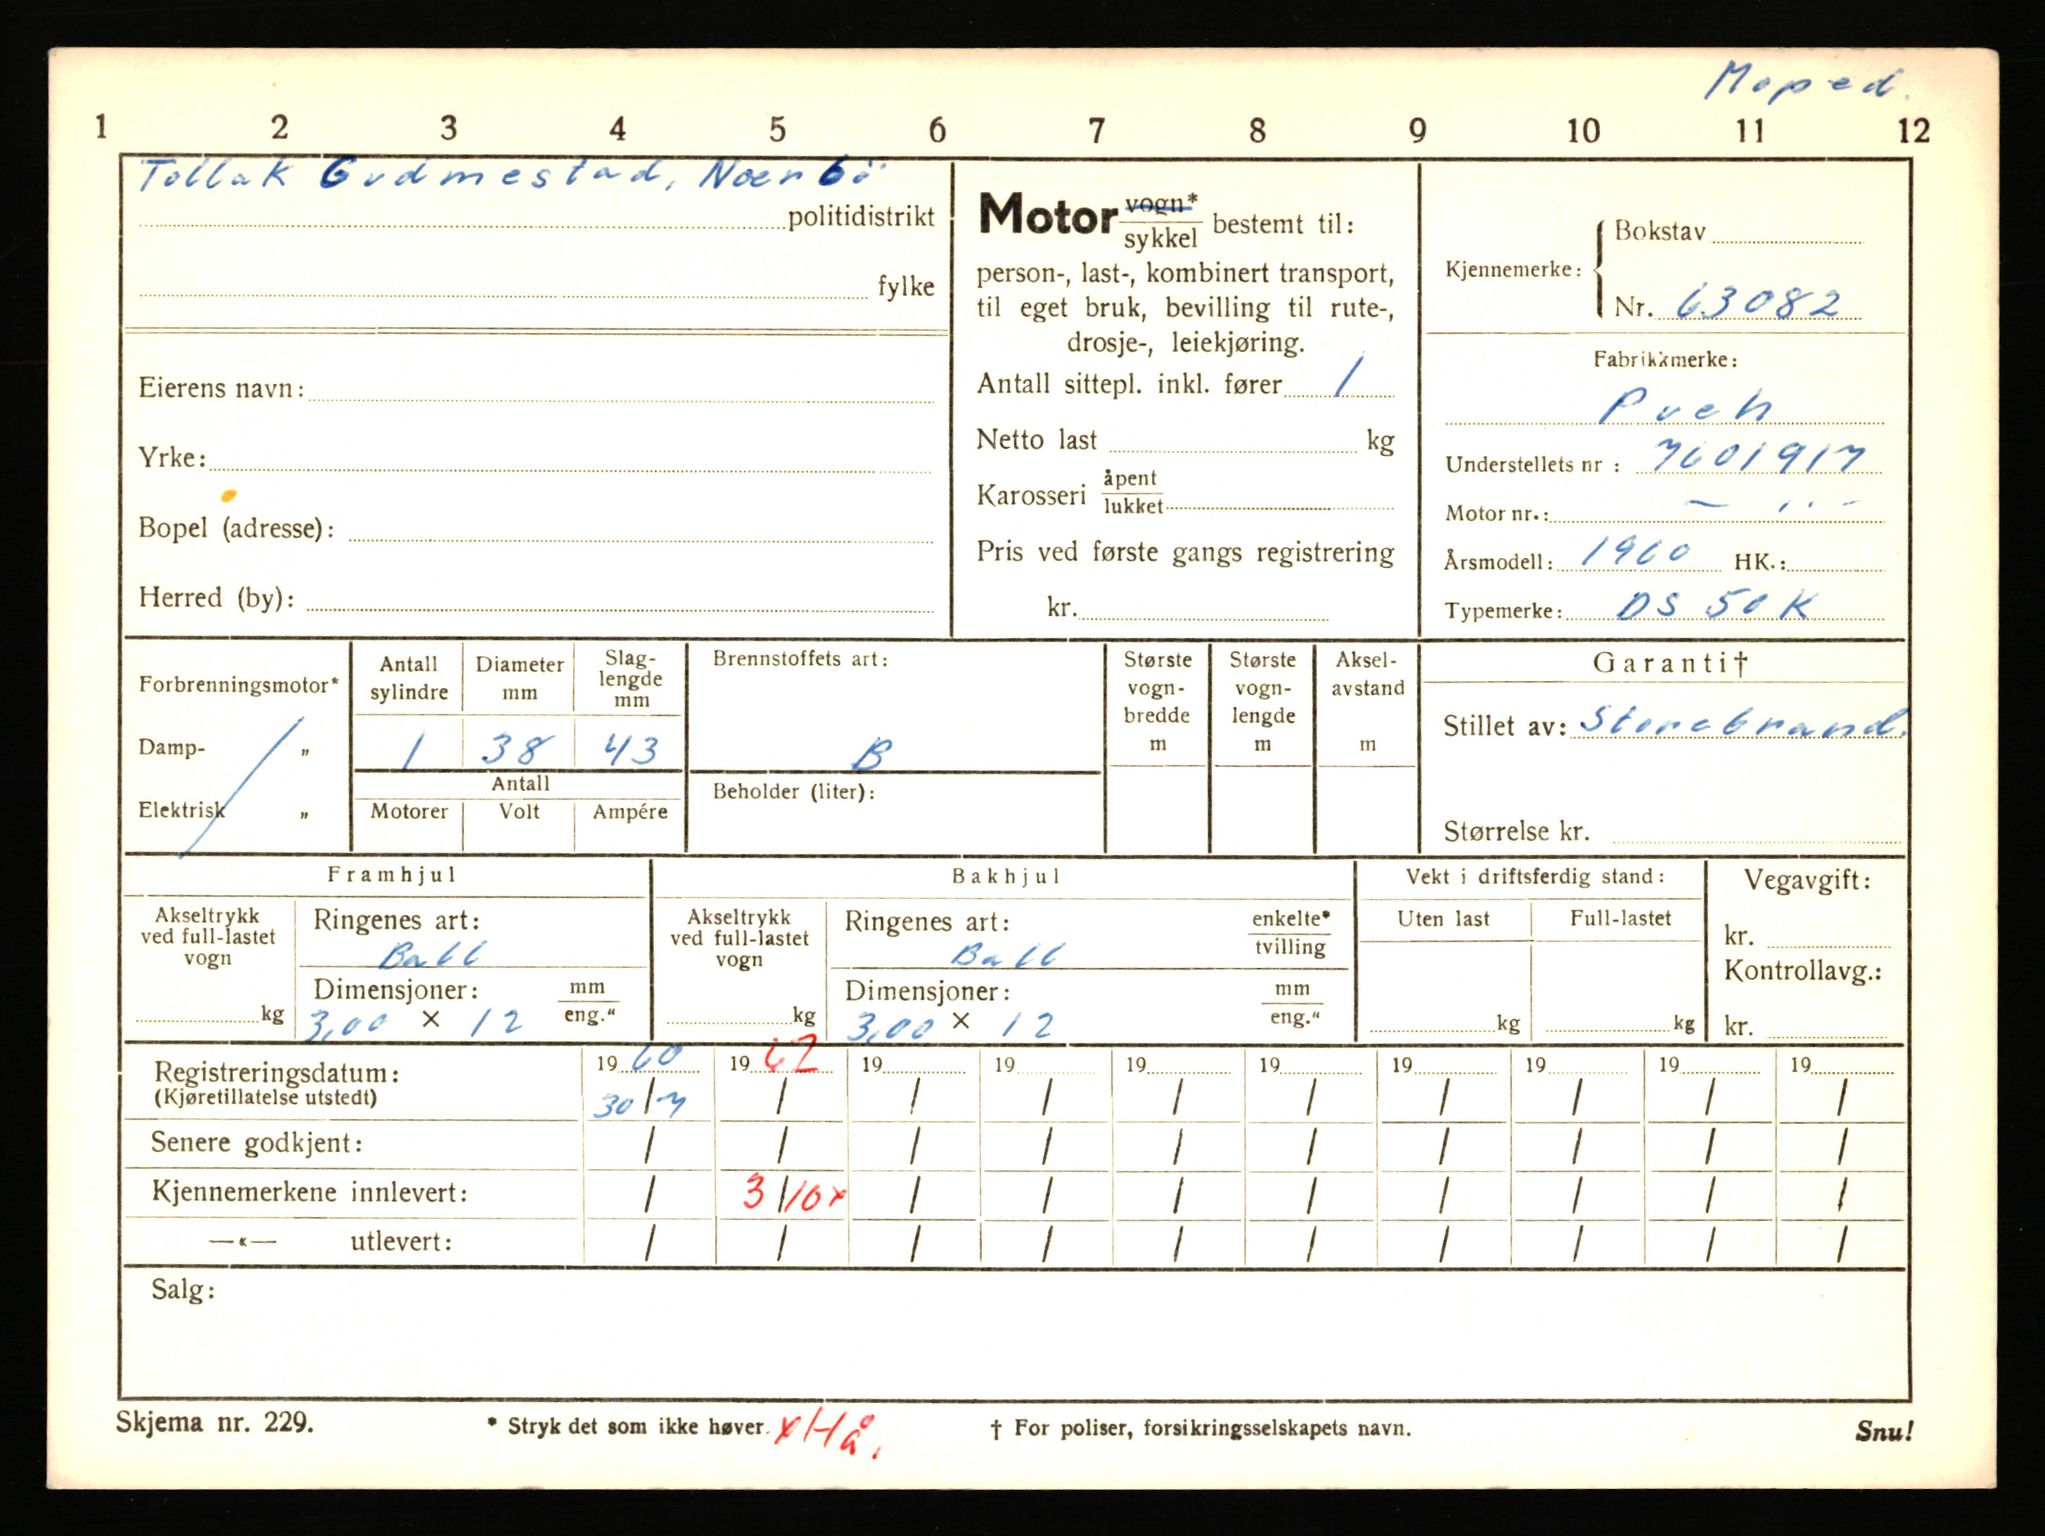 Moped.
1 2 3 4 5 6 7 8 9 10 11 12
Tollak Gudmestad, Nærbö
politidistrikt
fylke
Eierens navn:
Yrke:
Bopel (adresse):
Herred (by):
Motor vogn* / sykkel bestemt til:
person-, last-, kombinert transport,
til eget bruk, bevilling til rute-,
drosje-, leiekjøring.
Antall sittepl. inkl. fører 1
Netto last kg
Karosseri åpent / lukket
Pris ved første gangs registrering
kr.
Kjennemerke: { Bokstav
Nr. 63082
Fabrikkmerke:
Puch
Understellets nr : 7601917
Motor nr.: — ,, —
Årsmodell: 1960 HK.:
Typemerke: DS 50 K
Forbrenningsmotor*
Damp- „
Elektrisk „
Antall sylindre
Diameter mm
Slag-lengde mm
1 38 43
Antall
Motorer Volt Ampére
Brennstoffets art:
B
Beholder (liter):
Største vogn-bredde m
Største vogn-lengde m
Aksel-avstand m
Garanti†
Stillet av: Storebrand.
Størrelse kr.
Framhjul
Akseltrykk ved full-lastet vogn
kg
Ringenes art:
Ball
Dimensjoner: mm / eng."
3,00 × 12
Bakhjul
Akseltrykk ved full-lastet vogn
kg
Ringenes art: enkelte* / tvilling
Ball
Dimensjoner: mm / eng."
3,00 × 12
Vekt i driftsferdig stand:
Uten last Full-lastet
kg kg
Vegavgift:
kr.
Kontrollavg.:
kr.
Registreringsdatum: 19 60 19 62 19 19 19 19 19 19 19 19
(Kjøretillatelse utstedt) 30/7 / / / / / / / / /
Senere godkjent: / / / / / / / / / /
Kjennemerkene innlevert: / 3/10 x / / / / / / / /
—«— utlevert: / / / / / / / / / /
Salg:
Skjema nr. 229. * Stryk det som ikke høver. x Hå. † For poliser, forsikringsselskapets navn. Snu!